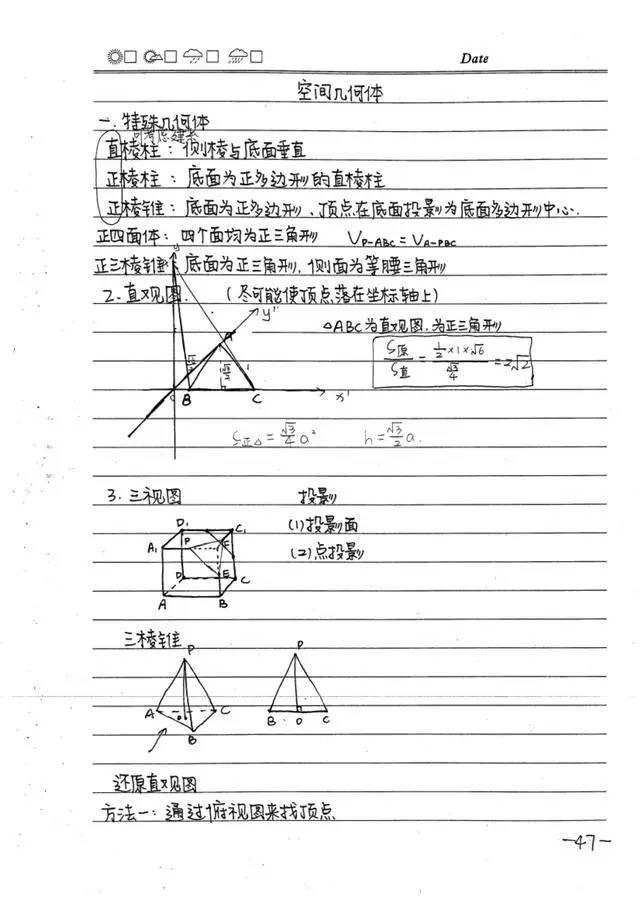 Date
空间几何体
一.特殊几何体
可考虑建系
直棱柱:侧棱与底面垂直
正棱柱:底面为正多边形的直棱柱
正棱锥:底面为正多边形、顶点在底面投影为底面多边形中心.
正四面体:四个面均为正三角形 V_{P-ABC} = V_{A-PBC}
正三棱锥:底面为正三角形,侧面为等腰三角形
2.直观图. (尽可能使顶点落在坐标轴上)
y
A y''
△ABC为直观图.为正三角形
S原/S直 = (1/2×1×√6)/(√3/4) = 2√2
√6/2 √3/2 1
B C x'
S正△ = √3/4 a² h = √3/2 a.
3.三视图 投影
(1)投影面
(2)点投影
D₁ C₁
A₁ P F
D E C
A B
三棱锥
P P
A O C B O C
B
还原直观图
方法一:通过俯视图来找顶点
-47-